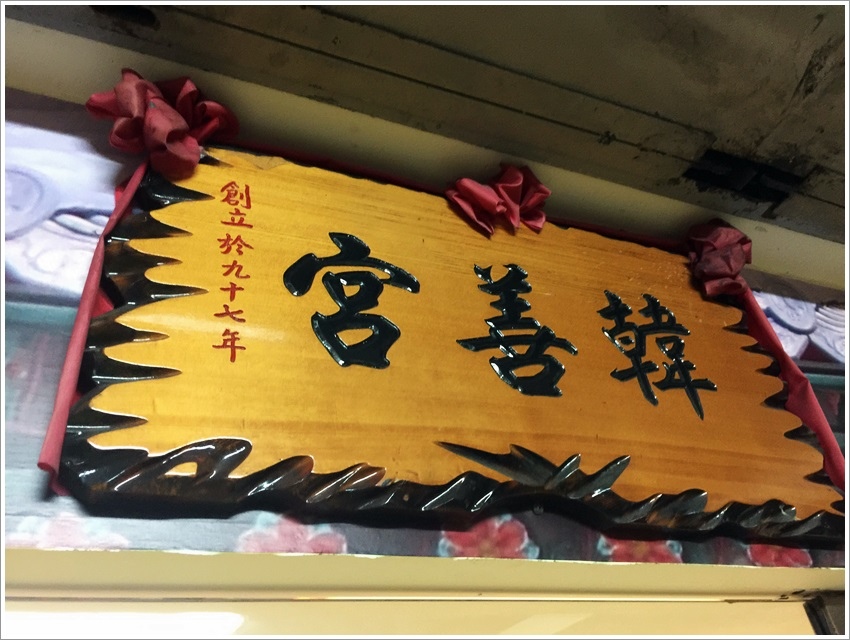 韓善宮
創立於九十七年